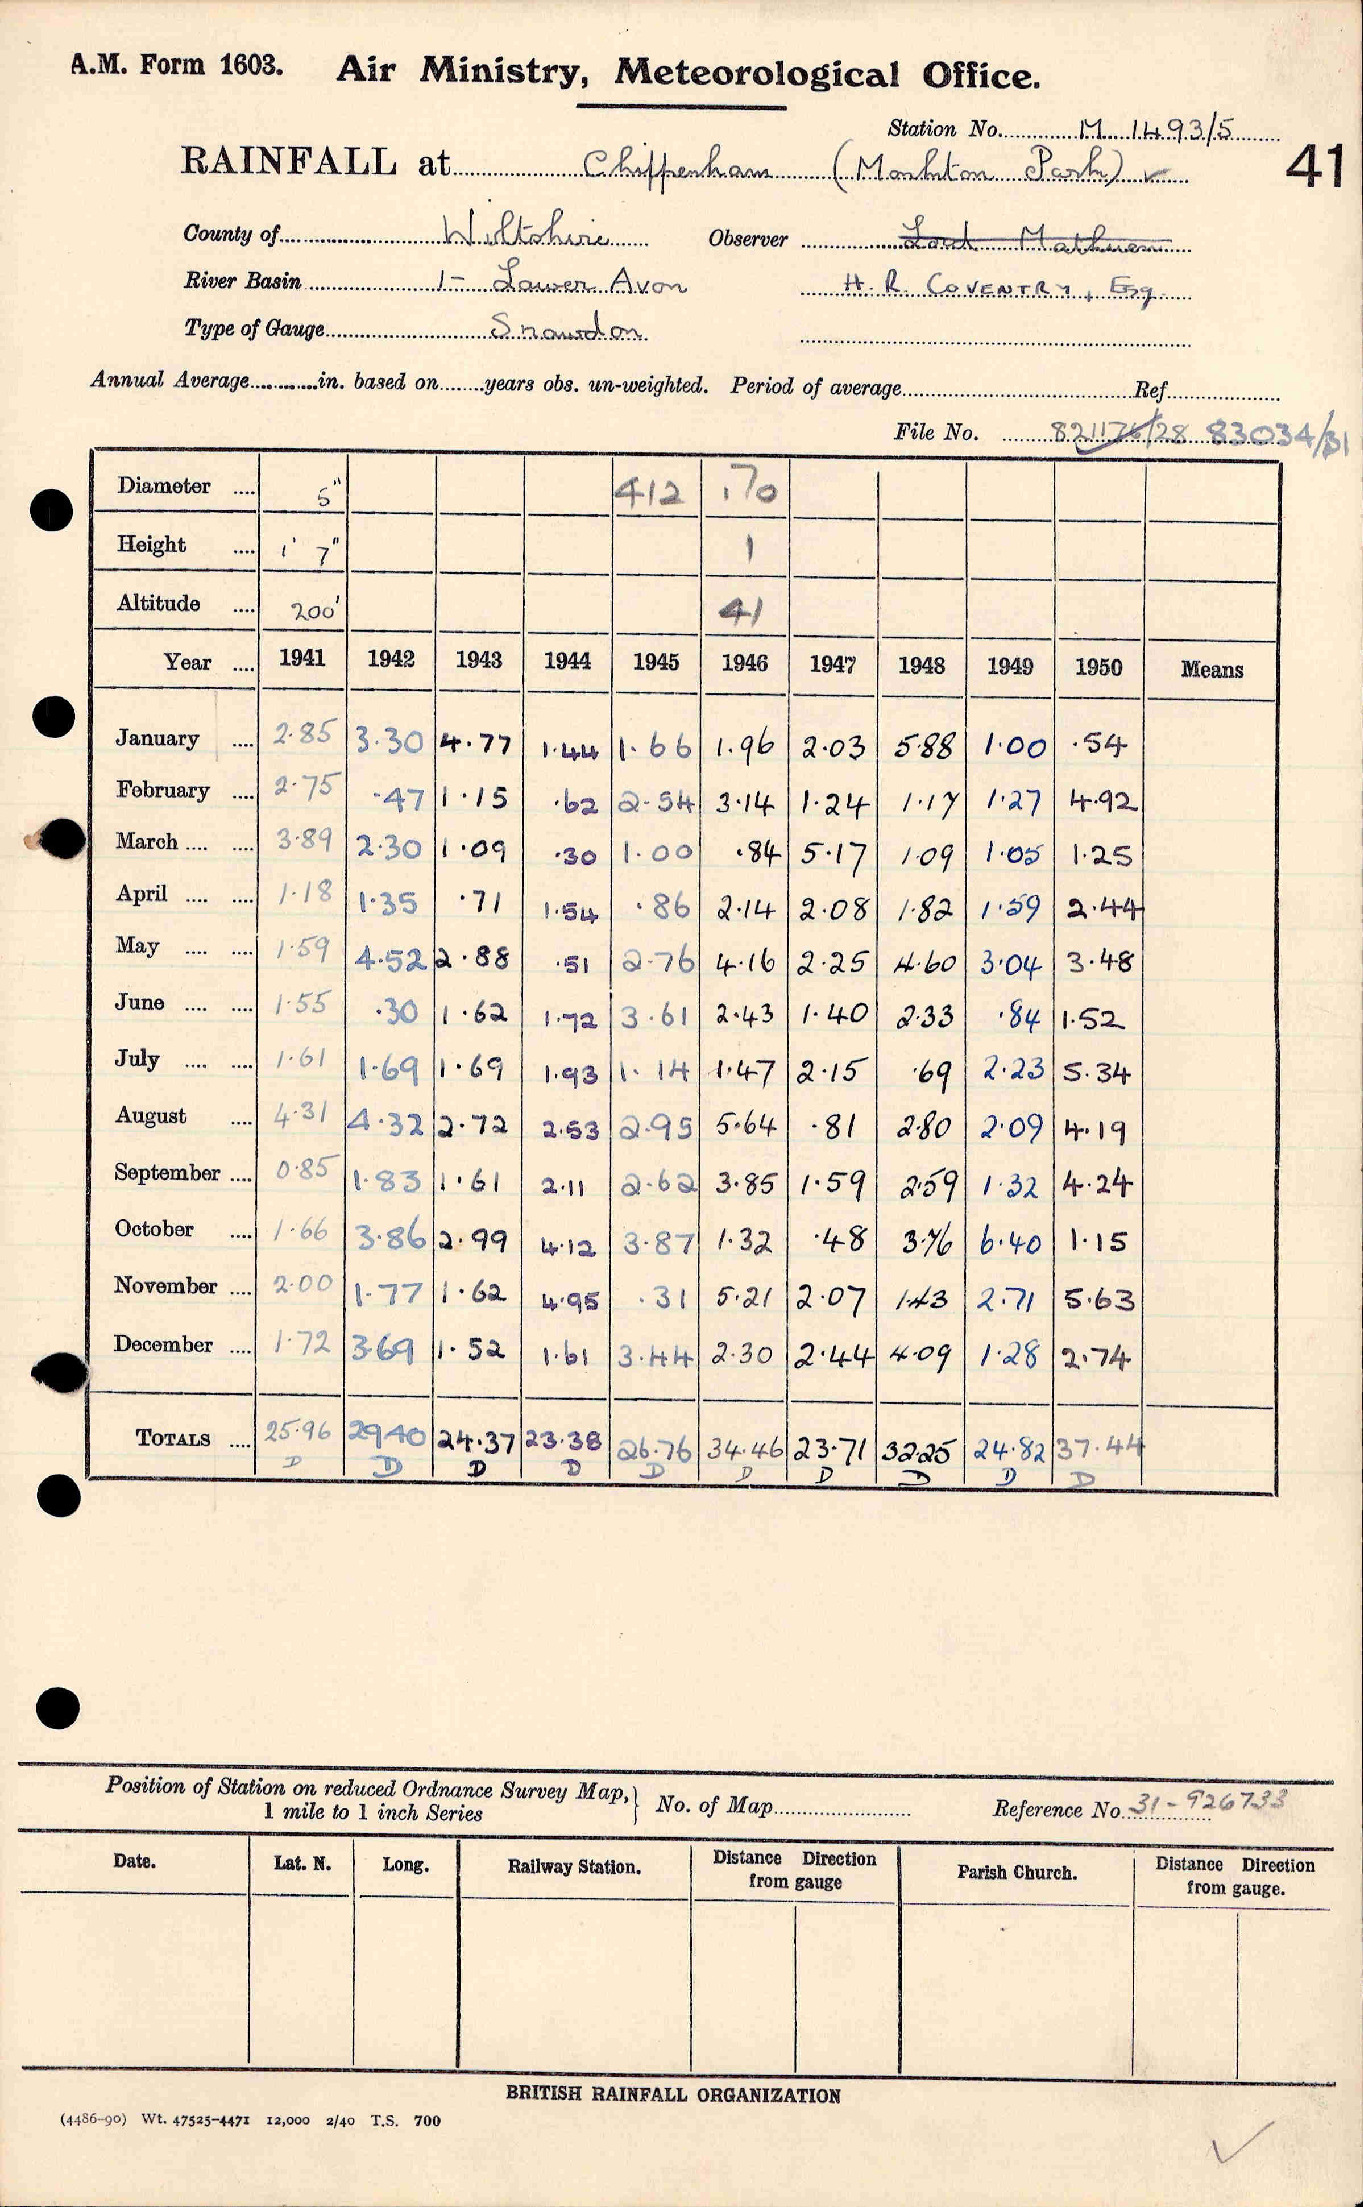 A.M. Form 1603. Air Ministry, Meteorological Office.
Station No. M 1493/5
RAINFALL at Chippenham (Monkton Park) ✓ 41
County of Wiltshire Observer Lord Methuen
River Basin 1- Lower Avon H. R. COVENTRY, Esq.
Type of Gauge Snowdon
Annual Average in. based on years obs. un-weighted. Period of average Ref
File No. 821176/28 83034/31
Diameter .... 5" 412 .70
Height .... 1' 7" 1
Altitude .... 200' 41
Year .... 1941 1942 1943 1944 1945 1946 1947 1948 1949 1950 Means
January .... 2.85 3.30 4.77 1.44 1.66 1.96 2.03 5.88 1.00 .54
February .... 2.75 .47 1.15 .62 2.54 3.14 1.24 1.17 1.27 4.92
March .... .... 3.89 2.30 1.09 .30 1.00 .84 5.17 1.09 1.05 1.25
April .... .... 1.18 1.35 .71 1.54 .86 2.14 2.08 1.82 1.59 2.44
May .... .... 1.59 4.52 2.88 .51 2.76 4.16 2.25 4.60 3.04 3.48
June .... .... 1.55 .30 1.62 1.72 3.61 2.43 1.40 2.33 .84 1.52
July .... .... 1.61 1.69 1.69 1.93 1.14 1.47 2.15 .69 2.23 5.34
August .... 4.31 4.32 2.72 2.53 2.95 5.64 .81 2.80 2.09 4.19
September .... 0.85 1.83 1.61 2.11 2.62 3.85 1.59 2.59 1.32 4.24
October .... 1.66 3.86 2.99 4.12 3.87 1.32 .48 3.76 6.40 1.15
November .... 2.00 1.77 1.62 4.95 .31 5.21 2.07 1.43 2.71 5.63
December .... 1.72 3.69 1.52 1.61 3.44 2.30 2.44 4.09 1.28 2.74
TOTALS .... 25.96 29.40 24.37 23.38 26.76 34.46 23.71 32.25 24.82 37.44
D D D D D D D D D D
Position of Station on reduced Ordnance Survey Map, } No. of Map Reference No. 31-926733
1 mile to 1 inch Series
Date. Lat. N. Long. Railway Station. Distance Direction from gauge Parish Church. Distance Direction from gauge.
BRITISH RAINFALL ORGANIZATION
(4486-90) Wt. 47525-4471 12,000 2/40 T.S. 700